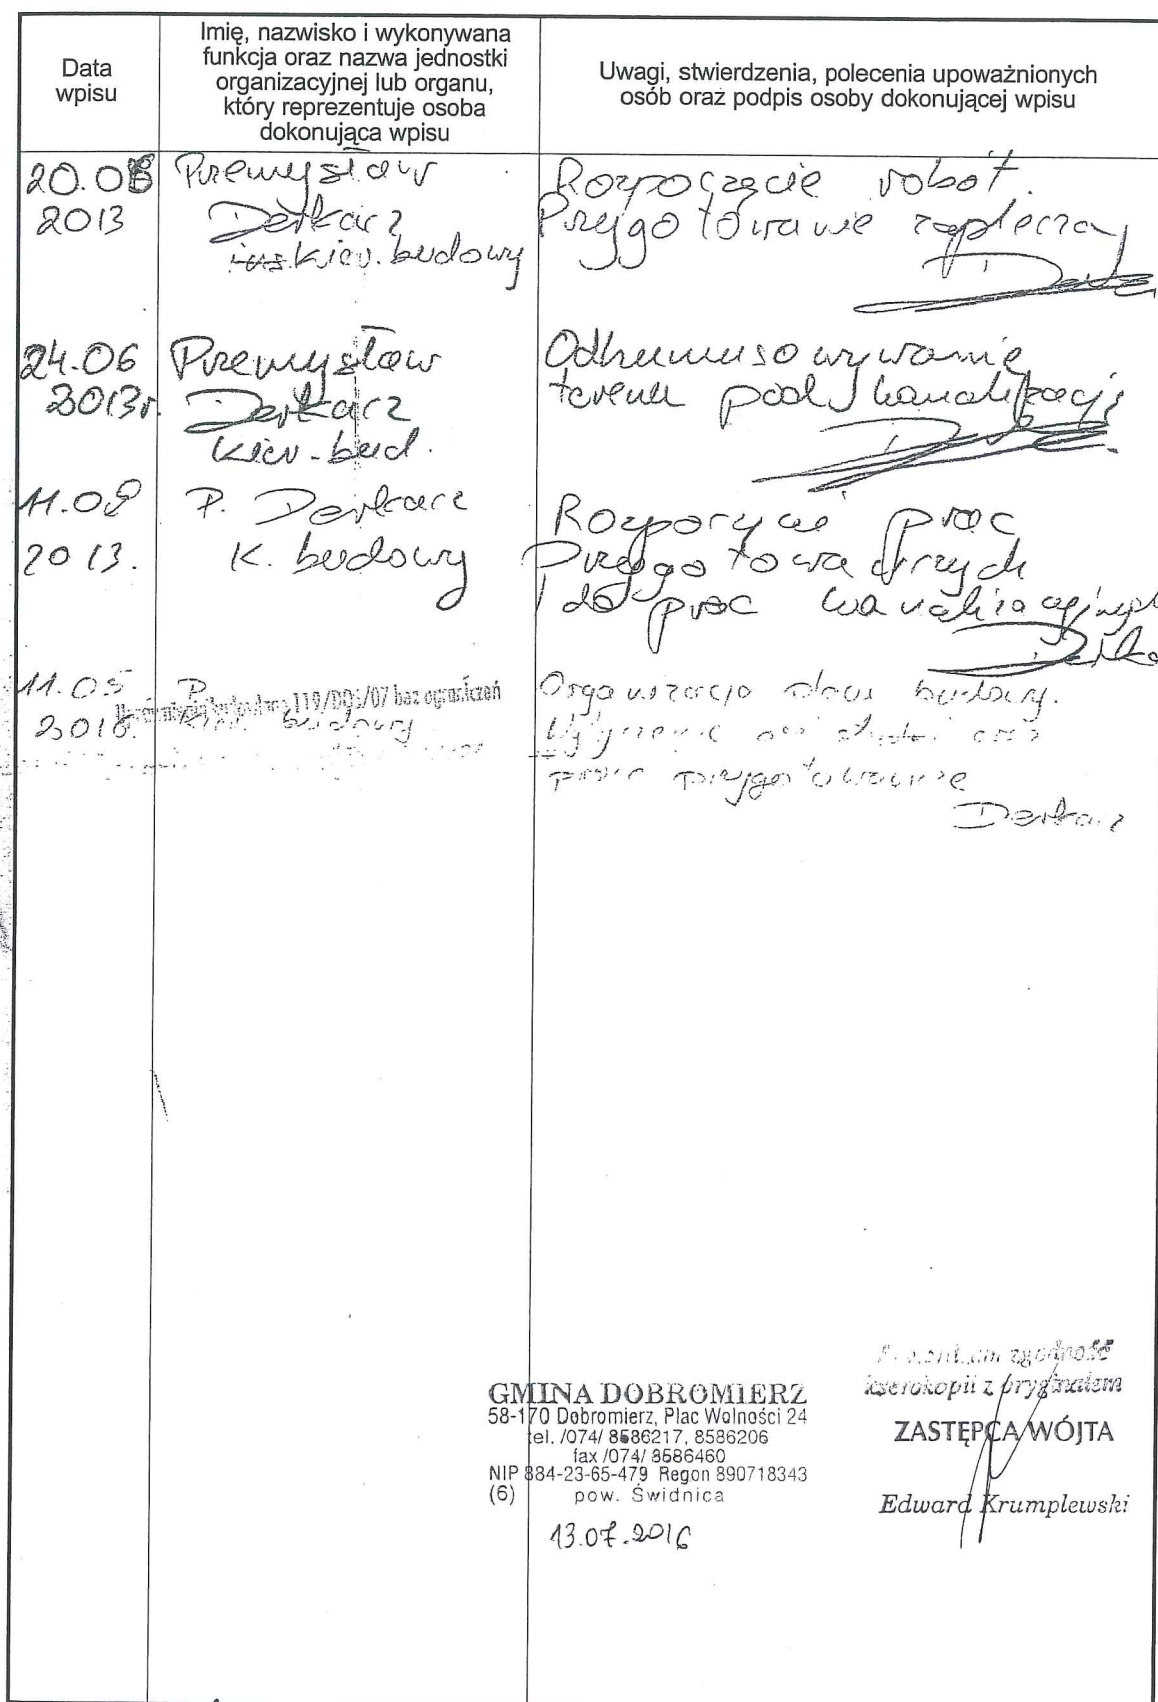 Data
wpisu
Imię, nazwisko i wykonywana
funkcja oraz nazwa jednostki
organizacyjnej lub organu,
który reprezentuje osoba
dokonująca wpisu
Uwagi, stwierdzenia, polecenia upoważnionych
osób oraz podpis osoby dokonującej wpisu
20.06
2013
Przemysław
Derkacz
kier. budowy
Rozpoczęcie robót.
Przygotowanie zaplecza
24.06
2013r.
Przemysław
Derkacz
kier. bud.
Odhumusowywanie
terenu pod kanalizację
11.08
2013.
P. Derkacz
K. budowy
Rozpoczęcie prac
Przygotowawczych
do prac kanalizacyjnych
11.05
2016.
P.
119/DOŚ/07 bez ograniczeń
Kier. budowy
Organizacja placu budowy.
Wytyczenie osi oraz
prace przygotowawcze
Derkacz
GMINA DOBROMIERZ
58-170 Dobromierz, Plac Wolności 24
tel. /074/ 8586217, 8586206
fax /074/ 8586460
NIP 884-23-65-479 Regon 890718343
(6) pow. Świdnica
13.07.2016
zgodność
kserokopii z oryginałem
ZASTĘPCA WÓJTA
Edward Krumplewski